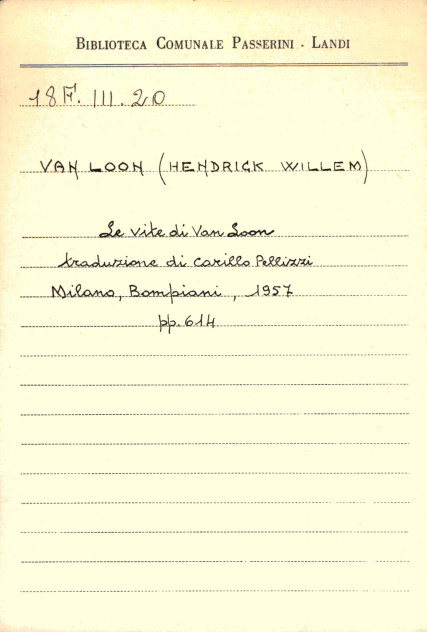 BIBLIOTECA COMUNALE PASSERINI - LANDI
18F. III. 20
VAN LOON (HENDRICK WILLEM)
Le vite di Van Loon
traduzione di Carillo Pellizzi
Milano, Bompiani, 1957
pp. 614